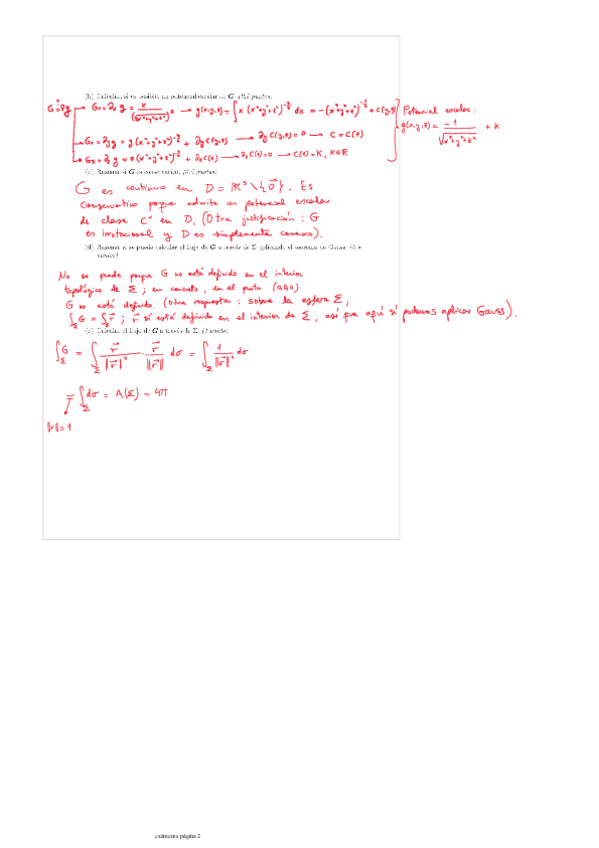 (b) Calcular, si es posible, un potencial escalar de G. (0.5 puntos)
G = ∇g → G₁ = ∂ₓ g = x/(√x²+y²+z²)³ → g(x,y,z) = ∫ x (x²+y²+z²)^(-3/2) dx = -(x²+y²+z²)^(-1/2) + C(y,z)
→ G₂ = ∂y g = y (x²+y²+z²)^(-3/2) + ∂y C(y,z) → ∂y C(y,z) = 0 → C = C(z)
→ G₃ = ∂z g = z (x²+y²+z²)^(-3/2) + ∂z C(z) → ∂z C(z) = 0 → C(z) = K, K∈ℝ
Potencial escalar:
g(x,y,z) = -1/√x²+y²+z² + K
(c) Razonar si G es conservativo. (0.5 puntos)
G es continuo en D = ℝ³ \ {0⃗}. Es
conservativo porque admite un potencial escalar
de clase C¹ en D. (Otra justificación: G
es irrotacional y D es simplemente conexo).
(d) Razonar si se puede calcular el flujo de G a través de Σ aplicando el teorema de Gauss. (0.5
puntos)
No se puede porque G no está definido en el interior
topológico de Σ; en concreto, en el punto (0,0,0)
G no está definido. (Otra respuesta: sobre la esfera Σ,
∫_Σ G = ∫_Σ r⃗; r⃗ sí está definido en el interior de Σ, así que aquí sí podemos aplicar Gauss).
(e) Calcular el flujo de G a través de Σ. (1 punto)
∫_Σ G = ∫_Σ r⃗/‖r⃗‖³ · r⃗/‖r⃗‖ dσ = ∫_Σ 1/‖r⃗‖² dσ
= ∫_Σ dσ = A(Σ) = 4π
‖r‖=1
exámenes página 2